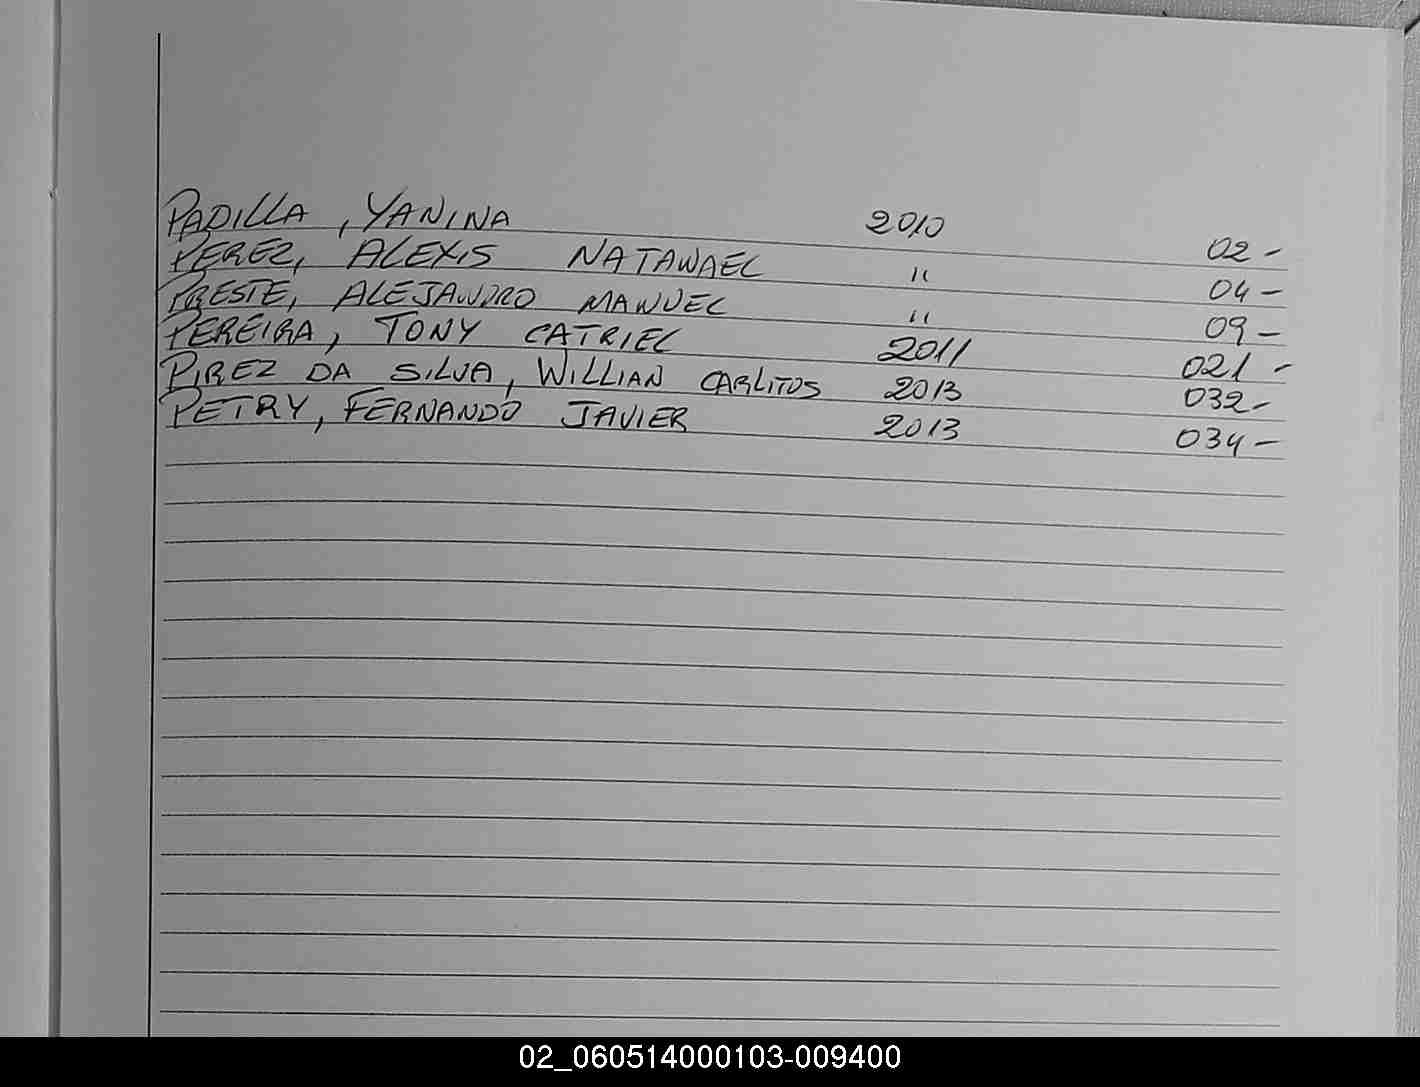 PADILLA, YANINA 2010 02-
PEREZ, ALEXIS NATANAEL " 04-
PRESTE, ALEJANDRO MANUEL " 09-
PEREIRA, TONY CATRIEL 2011 021-
PIREZ DA SILVA, WILLIAN CARLITOS 2013 032-
PETRY, FERNANDO JAVIER 2013 034-
02_060514000103-009400